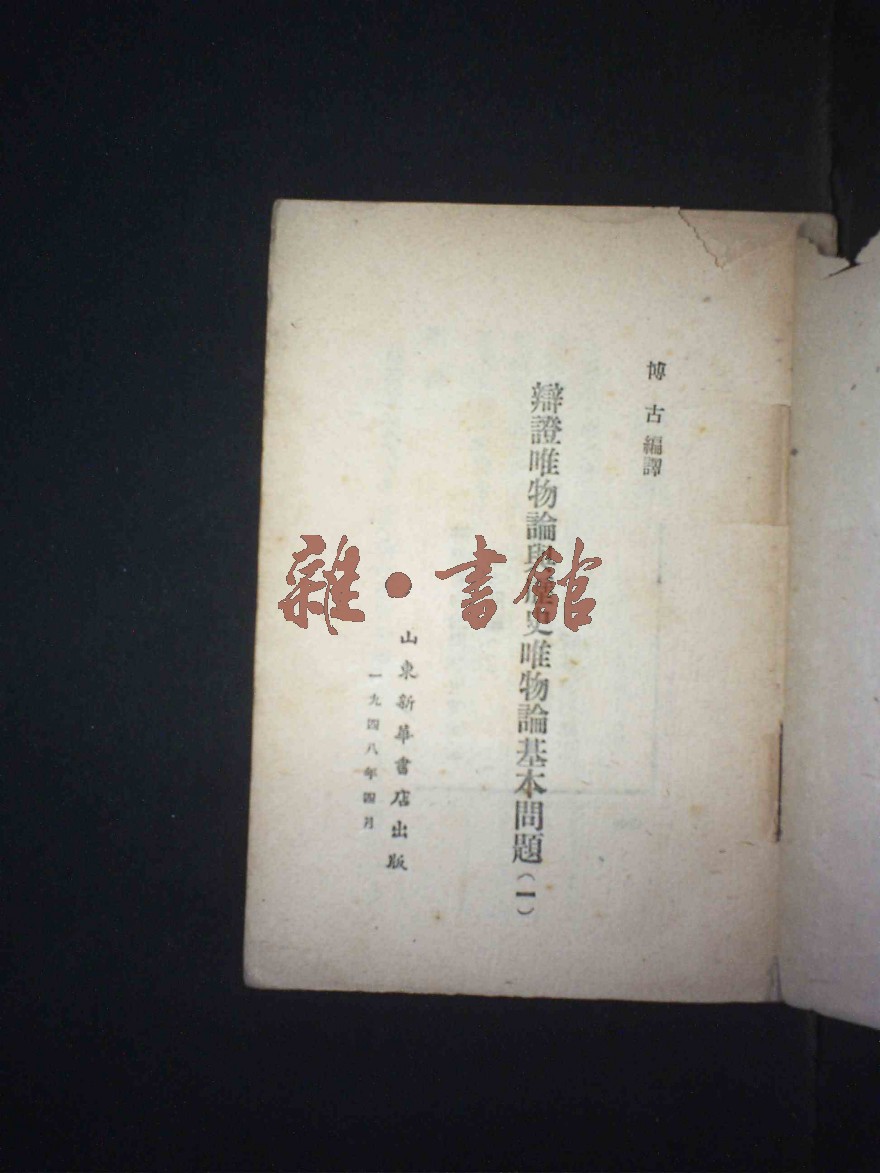 博古編譯
辯證唯物論與歷史唯物論基本問題(一)
山東新華書店出版
一九四八年四月
雜·書館